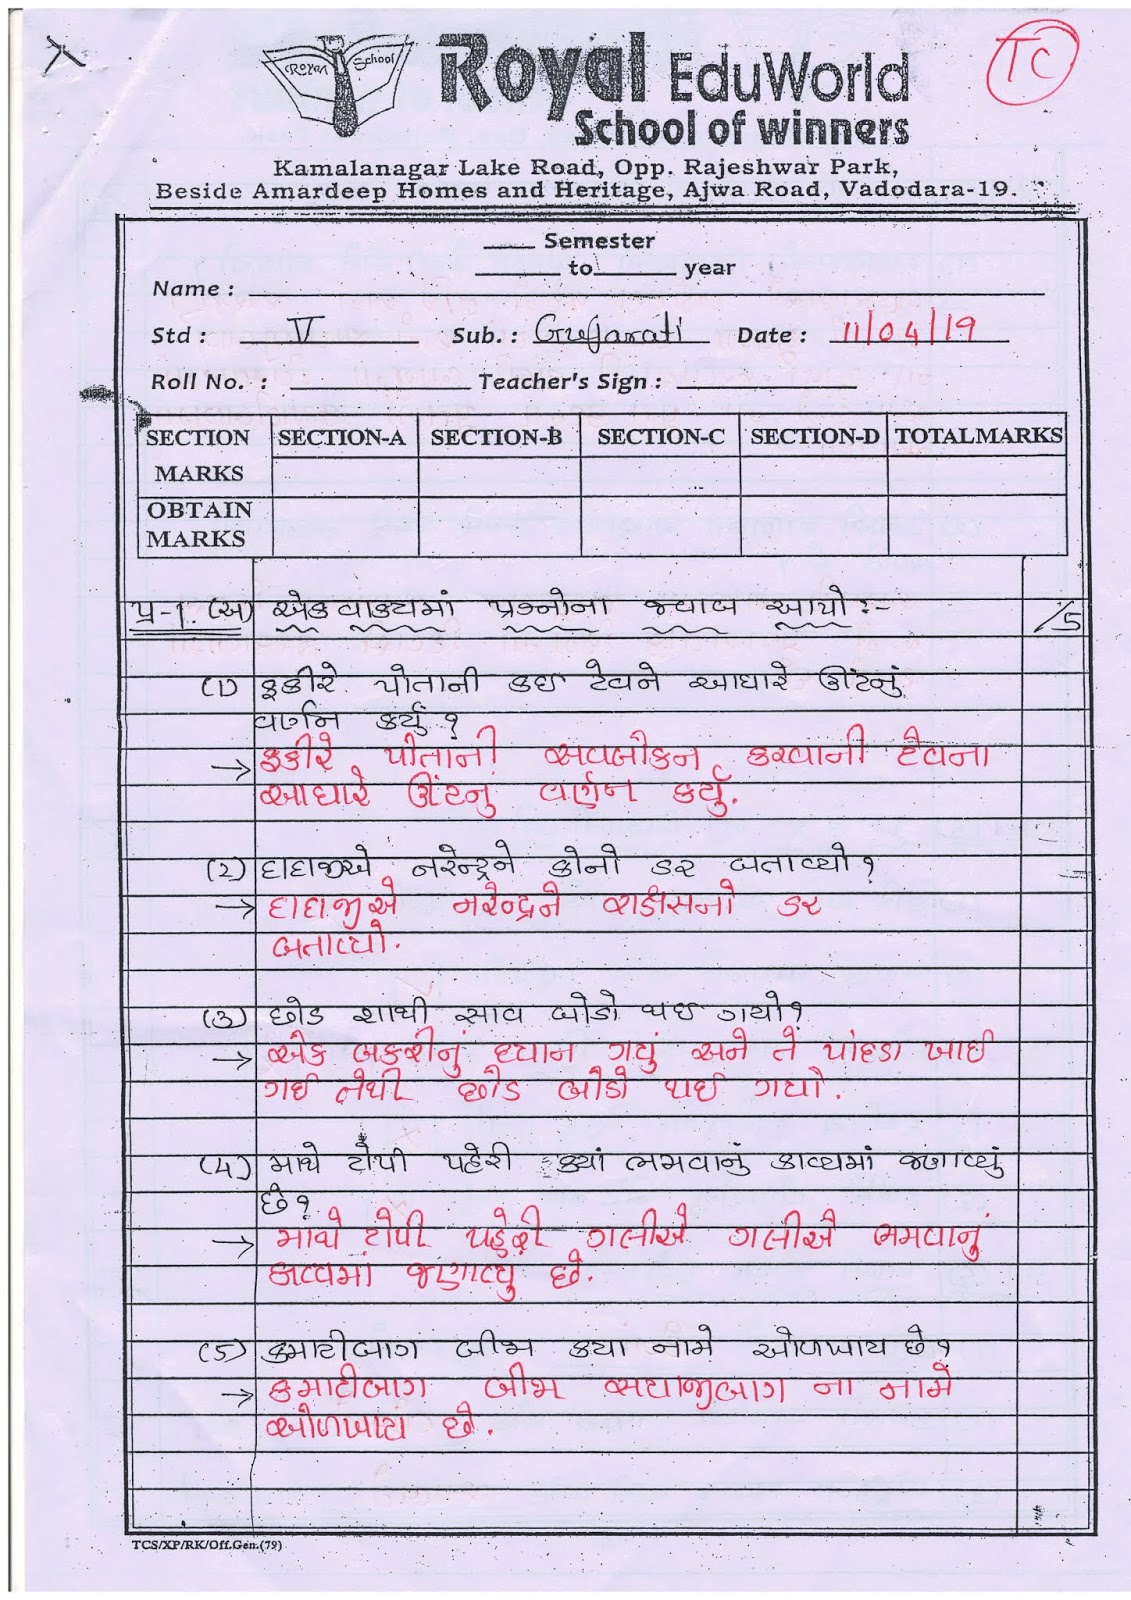 ROYAL School
TC
Royal EduWorld
School of winners
Kamalanagar Lake Road, Opp. Rajeshwar Park,
Beside Amardeep Homes and Heritage, Ajwa Road, Vadodara-19.
____ Semester
______ to ______ year
Name :
Std : V Sub. : Gujarati Date : 11/04/19
Roll No. : Teacher's Sign :
SECTION SECTION-A SECTION-B SECTION-C SECTION-D TOTALMARKS
MARKS
OBTAIN
MARKS
પ્ર-1. (અ) એક વાક્યમાં પ્રશ્નોના જવાબ આપો :- /5
(1) ફકીરે પોતાની કઇ ટેવને આધારે ઊંટનું
વર્ણન કર્યું ?
→ ફકીરે પોતાની અવલોકન કરવાની ટેવના
આધારે ઊંટનું વર્ણન કર્યું.
(2) દાદાજીએ નરેન્દ્રને કોનો ડર બતાવ્યો ?
→ દાદાજીએ નરેન્દ્રને રાક્ષસનો ડર
બતાવ્યો.
(3) છોડ શાથી સાવ બોડો થઇ ગયો ?
→ એક બકરીનું ધ્યાન ગયું અને તે પાંદડા ખાઈ
ગઈ તેથી છોડ બોડો થઈ ગયો.
(4) માથે ટોપી પહેરી ક્યાં ભમવાનું કાવ્યમાં જણાવ્યું
છે ?
→ માથે ટોપી પહેરી ગલીએ ગલીએ ભમવાનું
કાવ્યમાં જણાવ્યું છે.
(5) કમાટીબાગ બીજા કયા નામે ઓળખાય છે ?
→ કમાટીબાગ બીજા સયાજીબાગ ના નામે
ઓળખાય છે.
TCS/XP/RK/Off.Gen.(79)